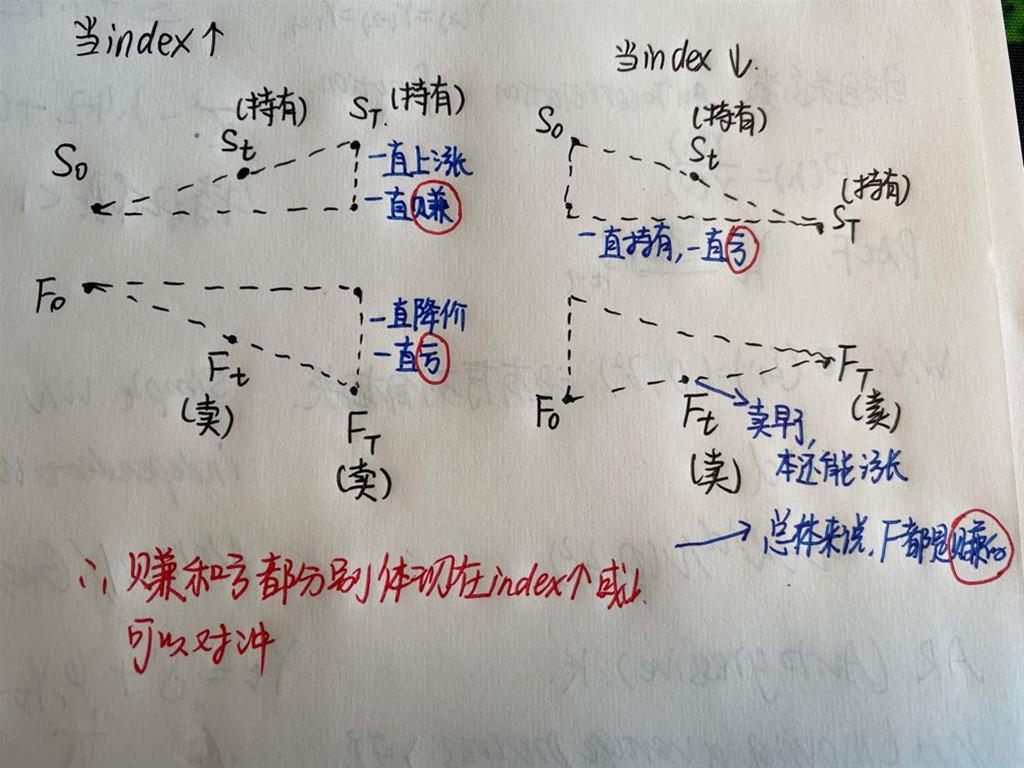 当index↑
(持有)
St
ST.(持有)
S0
一直上涨
一直赚
F0
一直降价
一直亏
Ft
(卖)
FT
(卖)
当index↓.
S0
(持有)
St
(持有)
ST
一直持有,一直亏
F0
Ft
(卖)
FT
(卖)
卖早了,
本还能涨
→总体来说,F都是赚的
∴赚和亏都分别体现在index↑或↓.
可以对冲